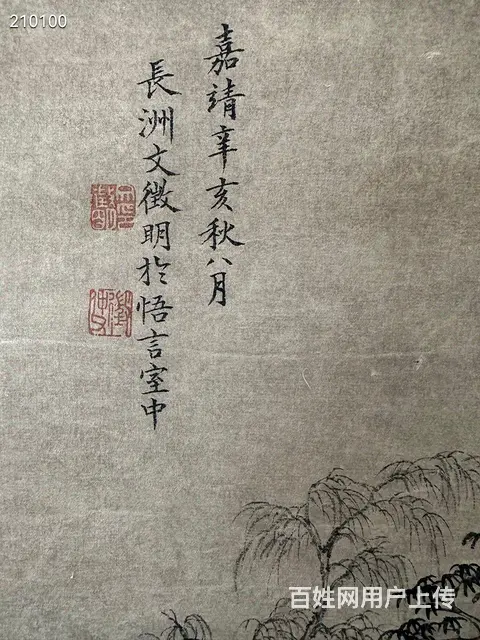 210100
嘉靖辛亥秋八月
長洲文徵明於悟言室中
百姓网用户上传